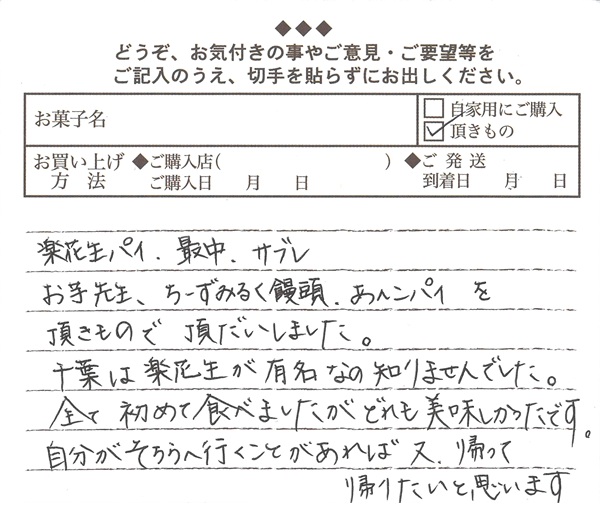 ◆◆◆
どうぞ、お気付きの事やご意見・ご要望等を
ご記入のうえ、切手を貼らずにお出しください。
お菓子名
自家用にご購入
頂きもの
お買い上げ方法
◆ご購入店( )
ご購入日 月 日
◆ご発送
到着日 月 日
楽花生パイ、最中、サブレ
お芋先生、ちーずみるく饅頭、あんンパイ を
頂きもので 頂だいしました。
千葉は楽花生が有名なの知りませんでした。
全て 初めて食べましたがどれも美味しかったです。
自分がそちらへ行くことがあれば 又、帰って
帰りたいと思います